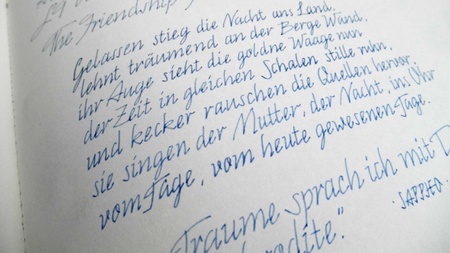 The Friendship
Gelassen stieg die Nacht ans Land,
lehnt träumend an der Berge Wand,
ihr Auge sieht die goldne Waage nun
der Zeit in gleichen Schalen stille ruhn,
und kecker rauschen die Quellen hervor,
sie singen der Mutter, der Nacht, ins Ohr
vom Tage, vom heute gewesenen Tage.
Traume sprach ich mit
SAPPHO